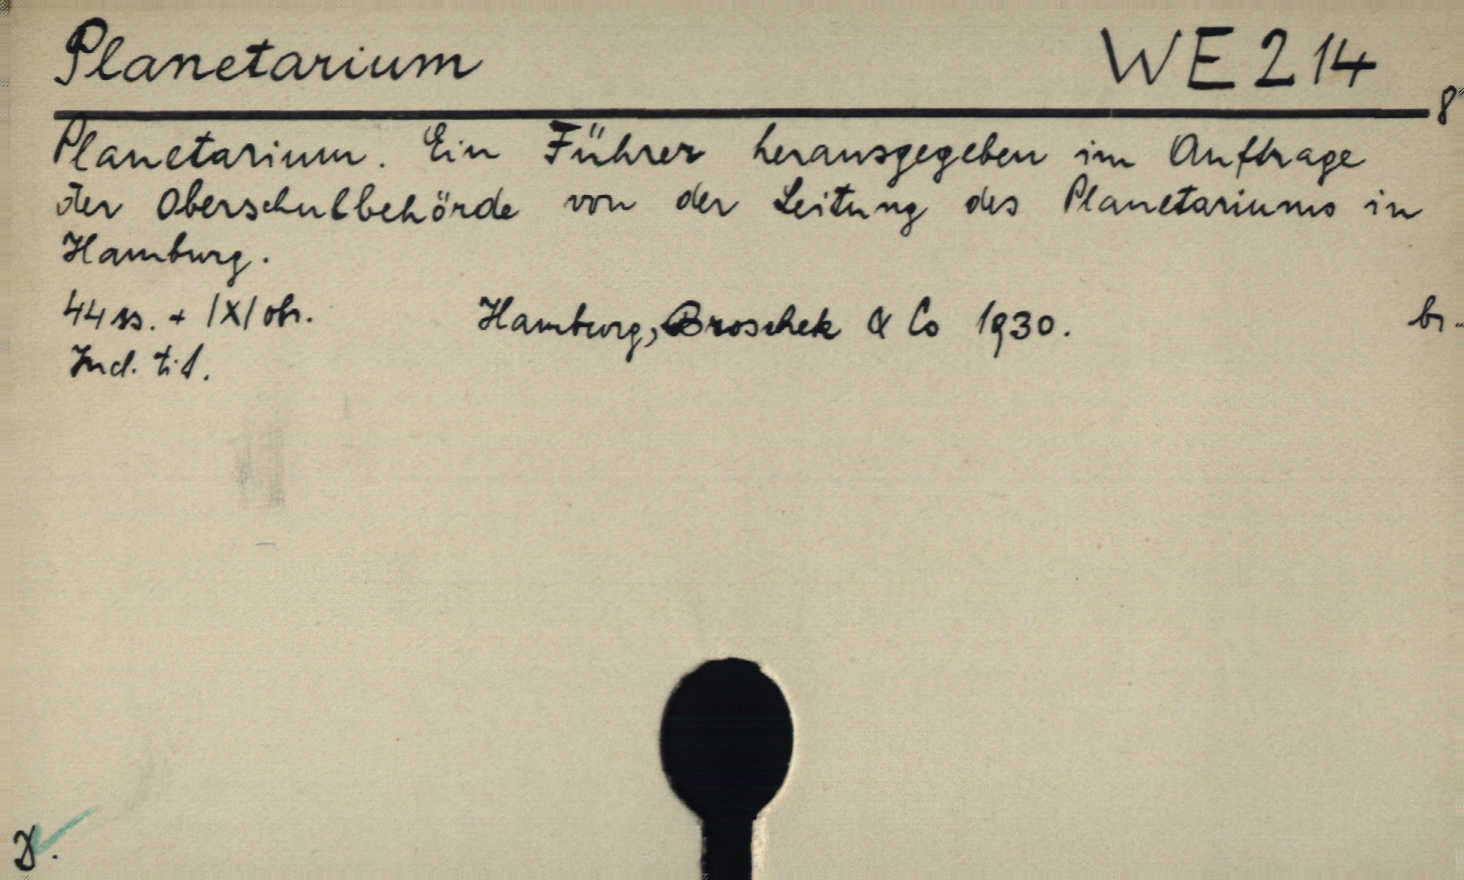 Planetarium WE 214
8°
Planetarium. Ein Führer herausgegeben im Auftrage
der Oberschulbehörde von der Leitung des Planetariums in
Hamburg.
44 ss. + /X/ obr. Hamburg, Broschek & Co 1930. br.
Ind. tit.
D.